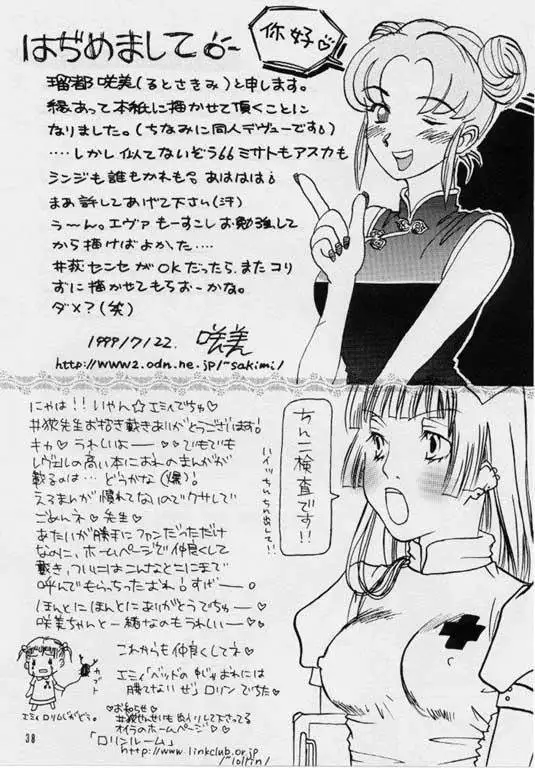 はぢめまして
你好
瑠都咲美(るとさきみ)と申します。
縁あって本紙に描かせて頂くことに
なりました。(ちなみに同人デヴューです)
‥‥しかし似てないぞうミサトもアスカも
シンジも誰もかれも。あははは
まあ許してあげて下さい(汗)
う〜ん。エヴァもーすこしお勉強して
から描けばよかった‥‥
井荻センセがOKだったら、またコリ
ずに描かせてもらおーかな。
ダメ?(笑)
1999/7/22. 咲美
http://www2.odn.ne.jp/~sakimi/
にゃは!!いやん☆エミィでちゅ♡
井荻先生お招き戴きありがとうございます!
キャ♡うれしいよー♡♡でもでも
レヴェルの高い本におれのまんがが
載るのは…どうかな(爆)!
えろまんが慣れてないのでクサしてて
ごめんネ♡先生♡
あたいが勝手にファンだっただけ
なのに、ホームページで仲良くして
戴き、ついにはこんなとこにまで
呼んでもらっちったおれ!すげー。
ほんとにほんとにありがとうでちゅー♡
咲美ちゃんと一緒なのもうれしいー♡
これからも仲良くしてネ♡
エミィ「ベッドの中じゃおれには
勝てないぜ」ロリンでちた♡
♡お知らせ♡
オイラのホームページ♡♡
「ロリンルーム」
http://www.linkclub.or.jp
/~lolrin/
ちん二検査です!!
カブト
38